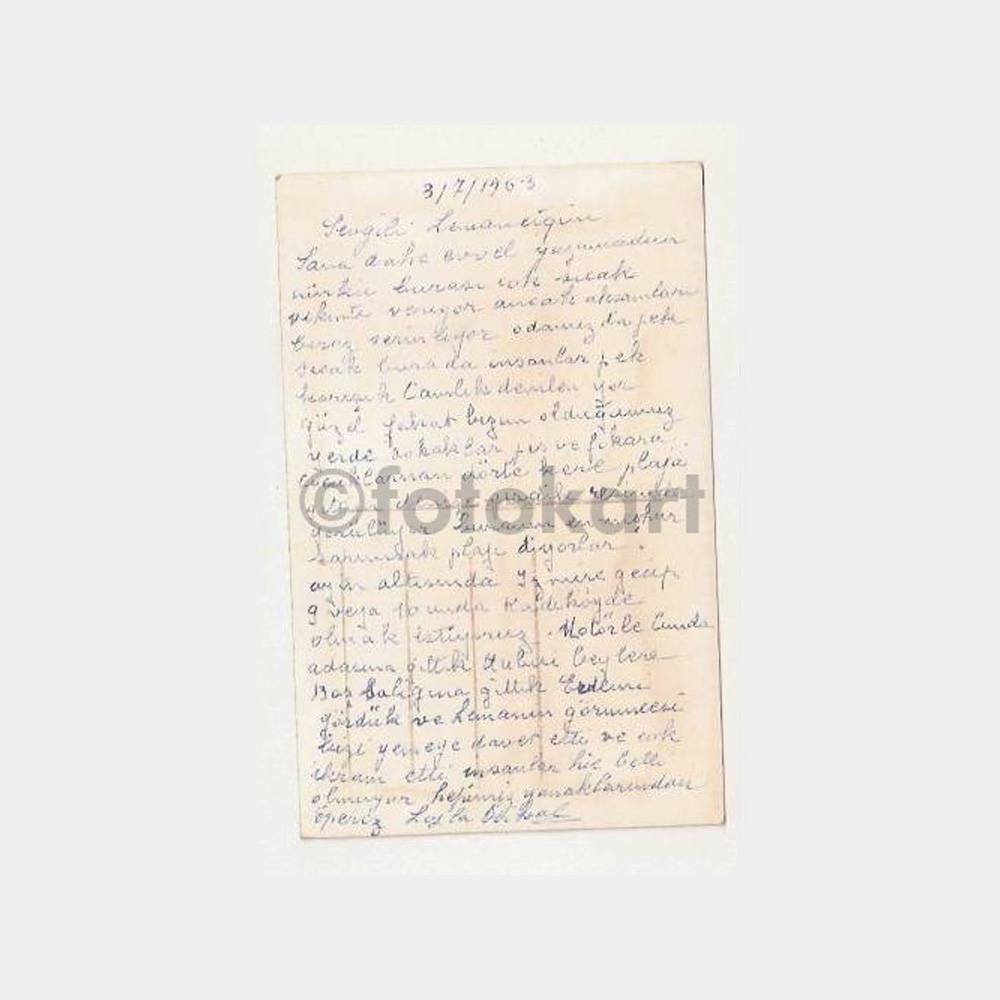 3/7/1963
Sevgili Lemancığım
Sana daha evvel yazamadım
çünkü burası çok sıcak
veriyor ancak akşamları
biraz serinliyor odamız da pek
sıcak burada insanlar pek
Çamlık denilen yer
güzel fakat bizim olduğumuz
yerde sokaklar pis ve fökara
dörte kere plaja
©fotokart
görülüyor buranın en meşhur
sarımsak plajı diyorlar.
ayın altısında İzmire geçip
9 veya 10 unda Kadıköyde
olmak istiyoruz. Motörle Cunda
adasına gittik beylere
Baş Balığına gittik
gördük ve Lemanın görümcesi
bizi yemeğe davet etti ve çok
ikram etti insanlar hiç belli
olmuyor hepimiz yanaklarından
öperiz Leyla